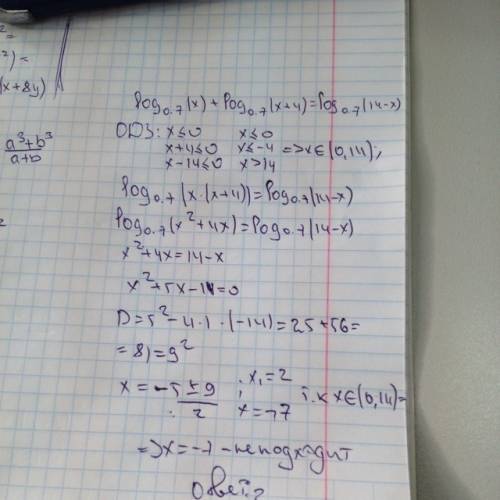 ²=
²)=
(x+8y)
a³+b³
a+b
log₀.₇(x)+log₀.₇(x+4)=log₀.₇(14-x)
ОДЗ: x≤0 x≤0
x+4≤0 x≤-4 =>x∈(0,14);
x-14≤0 x>14
log₀.₇(x·(x+4))=log₀.₇(14-x)
log₀.₇(x²+4x)=log₀.₇(14-x)
x²+4x=14-x
x²+5x-14=0
D=5²-4·1·(-14)=25+56=
=81=9²
x=-5±9/2 ; x₁=2 x=-7 т.к x∈(0,14)=
=>x=-7-неподходит
Ответ:2